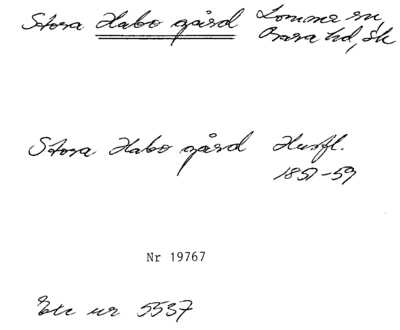 Stora Habo gård Lomma sn,
Bara hd, Sk
Stora Habo gård Husfl.
1857-59
Nr 19767
Etc nr 5537